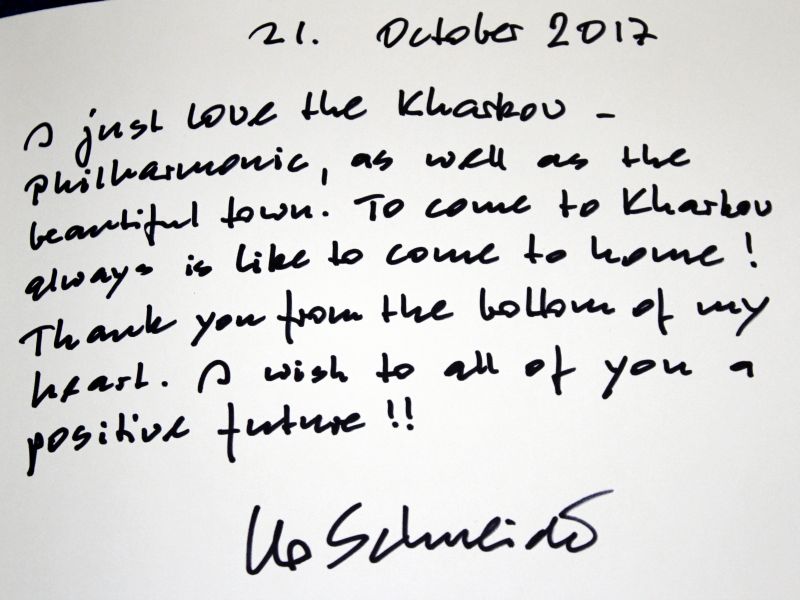 21. October 2017
I just love the Kharkov -
Philharmonic, as well as the
beautiful town. To come to Kharkov
always is like to come to home!
Thank you from the bottom of my
heart. I wish to all of you a
positive future!!
Schneider